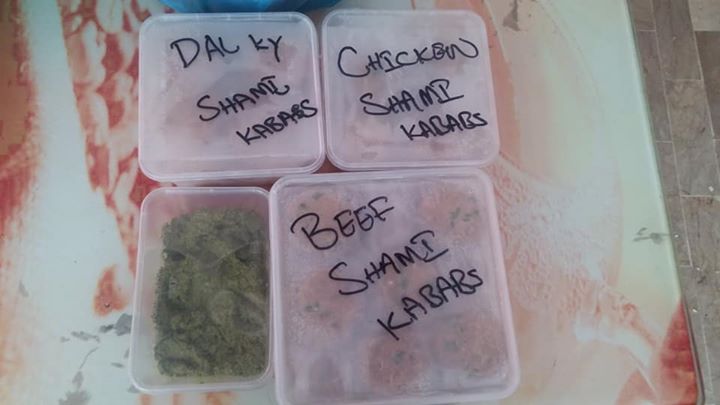 DAL KY
SHAMI
KABABS
CHICKEN
SHAMI
KABABS
BEEF
SHAMI
KABABS